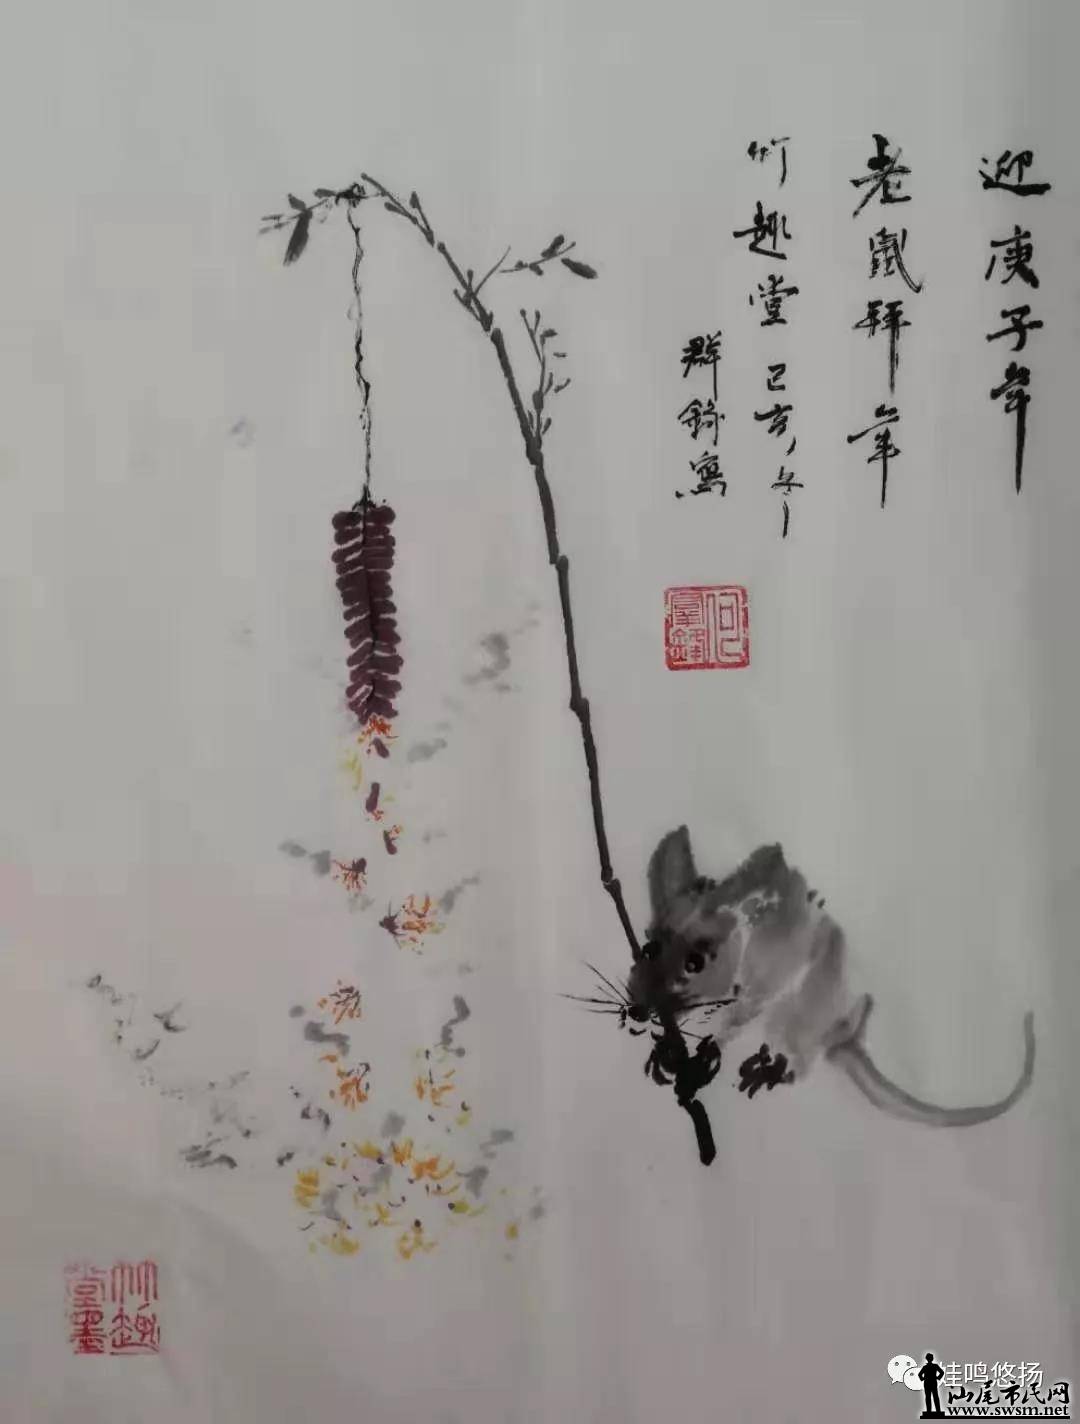 迎庚子年
老鼠拜年
竹趣堂己亥冬
群錦寫
竹趣
堂墨
蛙鸣悠扬
汕尾市民网
www.swsm.net